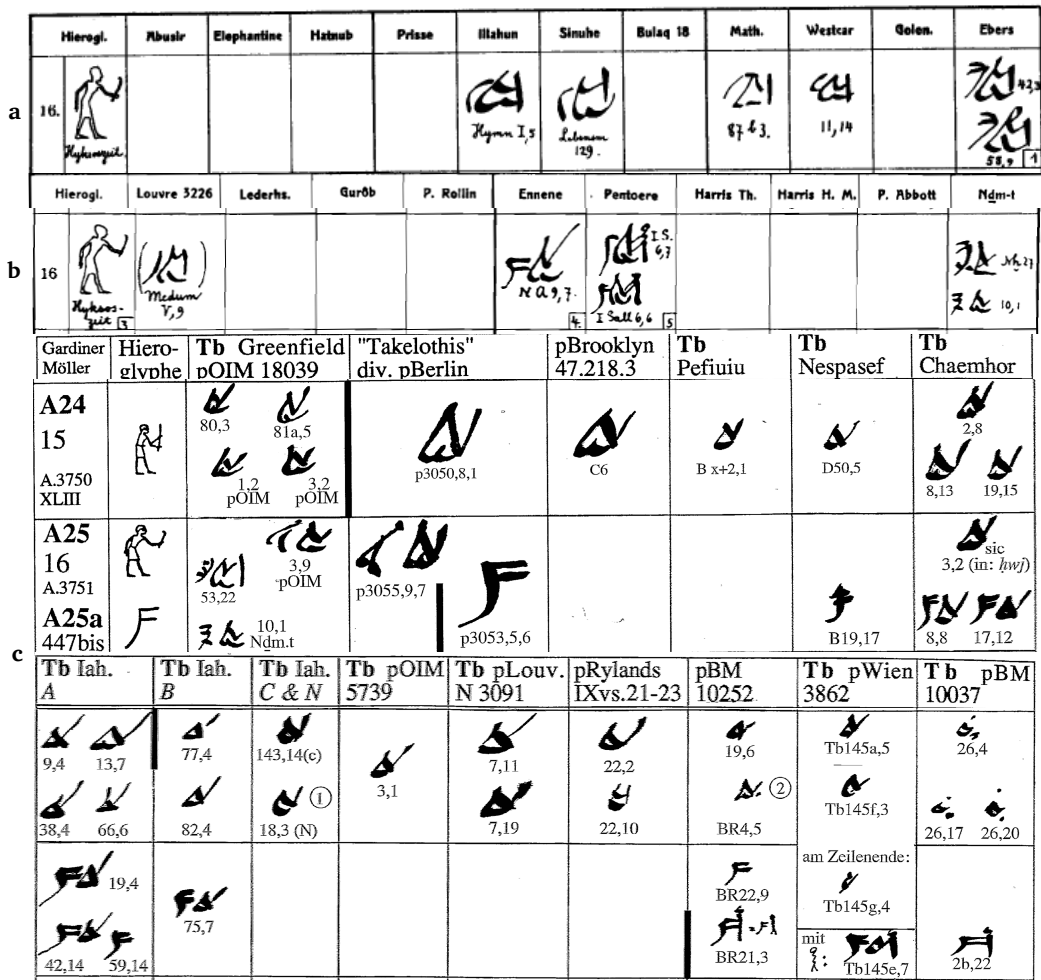 Hierogl. Abusir Elephantine Hatnub Prisse Illahun Sinuhe Bulaq 18 Math. Westcar Golen. Ebers
a 16. Hyksoszeit. Hymn I,5 Lebensm 129. 87 b 3. 11,14 42,3 58,9 1
Hierogl. Louvre 3226 Lederhs. Gurôb P. Rollin Ennene Pentoere Harris Th. Harris H. M. P. Abbott Nḏm-t
b 16 Hyksos-zeit 3 Medum V,9 N A 9,7. 4. I S. 6,7 I Sall 6,6 5 27 10,1
Gardiner Möller Hiero-glyphe Tb Greenfield pOIM 18039 "Takelothis" div. pBerlin pBrooklyn 47.218.3 Tb Pefiuiu Tb Nespasef Tb Chaemhor
A24 15 A.3750 XLIII
80,3 81a,5 1,2 pOIM 3,2 pOIM p3050,8,1 C6 B x+2,1 D50,5 2,8 8,13 19,15
A25 16 A.3751
A25a 447bis
53,22 3,9 pOIM 10,1 Nḏm.t p3055,9,7 p3053,5,6 B19,17 sic 3,2 (in: ḥwj) 8,8 17,12
c
Tb Iah. A Tb Iah. B Tb Iah. C & N Tb pOIM 5739 Tb pLouv. N 3091 pRylands IXvs.21-23 pBM 10252 Tb pWien 3862 Tb pBM 10037
9,4 13,7 77,4 143,14(c) 3,1 7,11 22,2 19,6 Tb145a,5 26,4
38,4 66,6 82,4 18,3 (N) ① 7,19 22,10 BR4,5 ② Tb145f,3 26,17 26,20
19,4 75,7 BR22,9 am Zeilenende: Tb145g,4
42,14 59,14 BR21,3 mit : Tb145e,7 2b,22